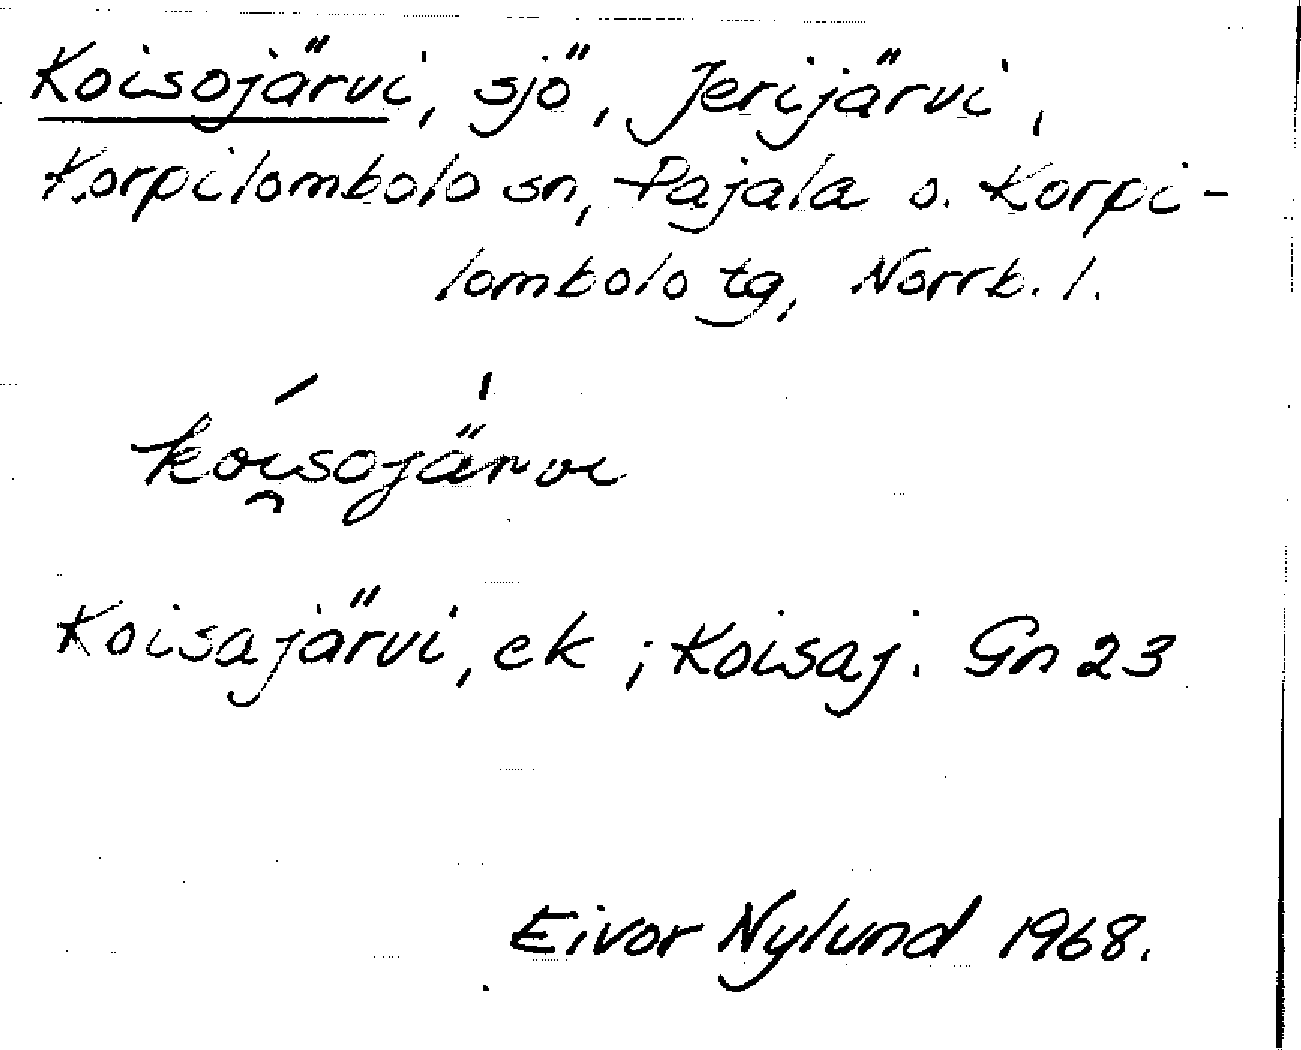 Koisojärvi, sjö, Jerijärvi,
Korpilombolo sn, Pajala o. Korpi-
lombolo tg, Norrb. l.
kói̯sojär̍vi
Koisajärvi, ek ; Koisaj. Gn 23
Eivor Nylund 1968.